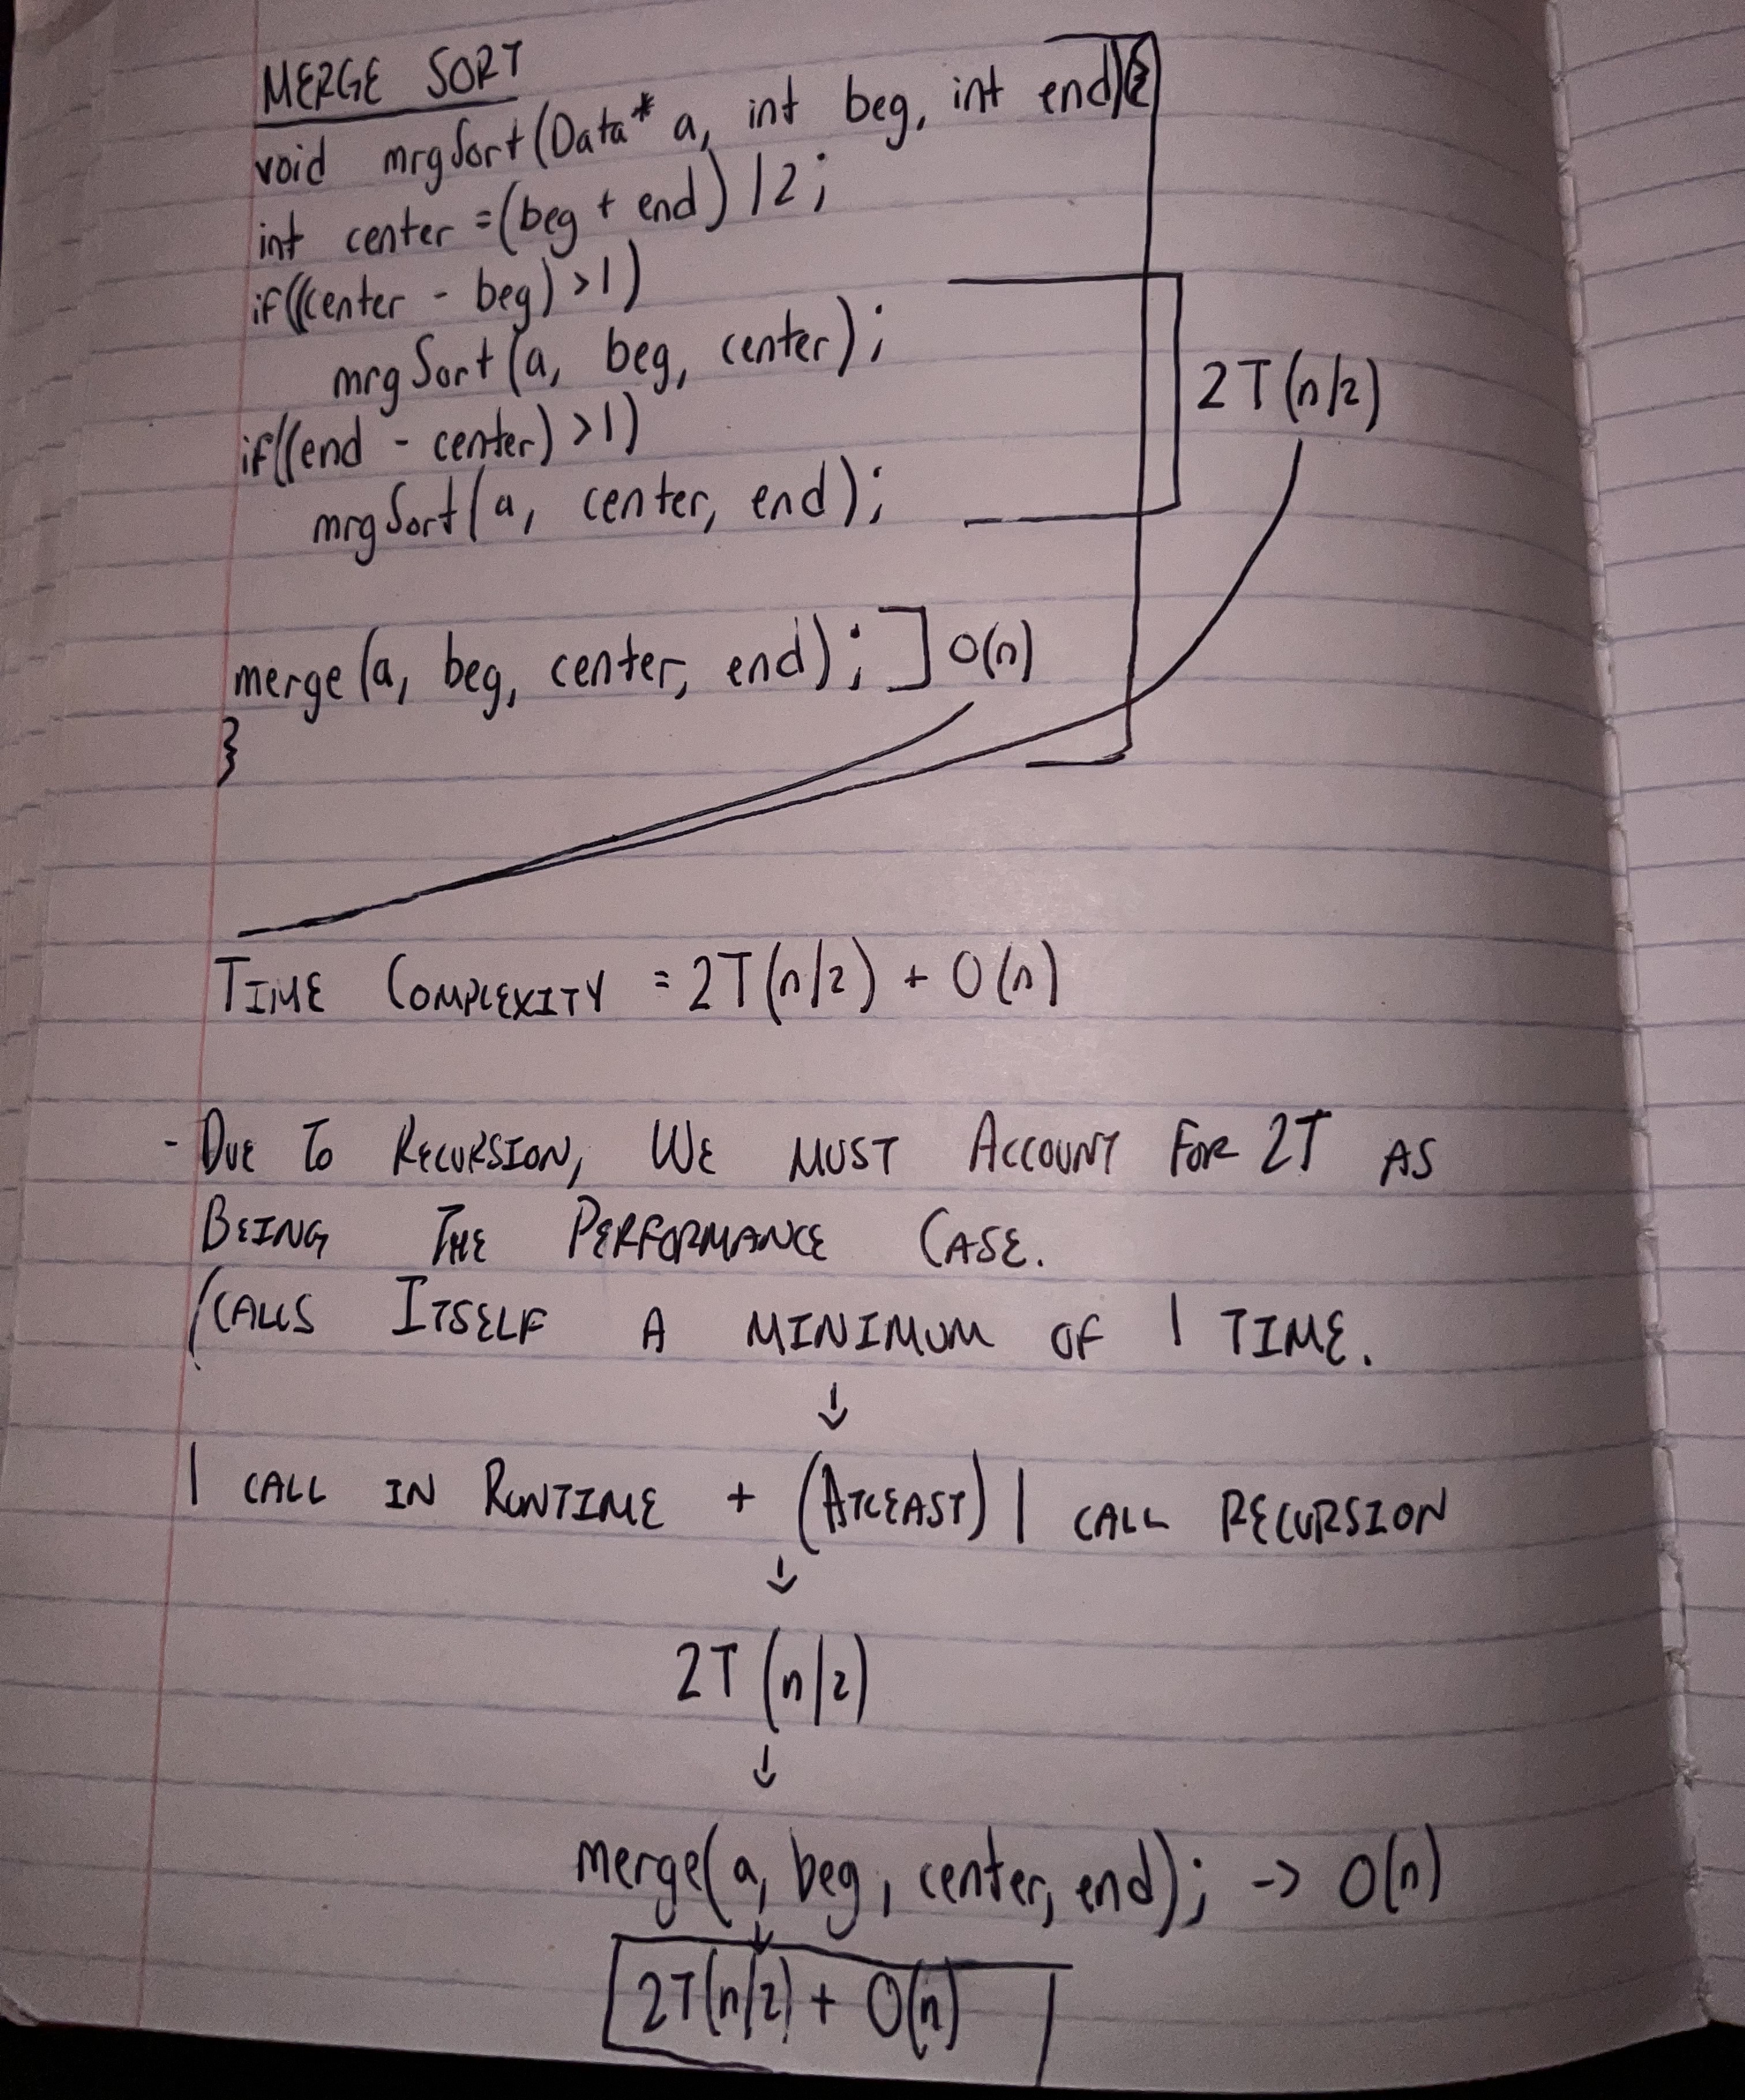 MERGE SORT
void mrgSort(Data* a, int beg, int end){
int center = (beg + end) / 2;
if((center - beg) > 1)
mrgSort(a, beg, center);
if((end - center) > 1)
mrgSort(a, center, end);
2T(n/2)
merge(a, beg, center, end); ] O(n)
}
TIME COMPLEXITY = 2T(n/2) + O(n)
- DUE TO RECURSION, WE MUST ACCOUNT FOR 2T AS
BEING THE PERFORMANCE CASE.
(CALLS ITSELF A MINIMUM OF 1 TIME.
↓
1 CALL IN RUNTIME + (ATLEAST) 1 CALL RECURSION
↓
2T(n/2)
↓
merge(a, beg, center, end); -> O(n)
↓
2T(n/2) + O(n)